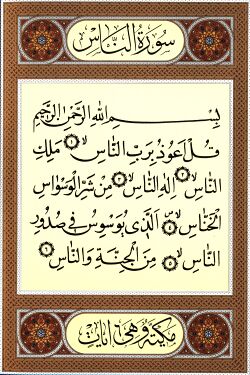 سُورَةُ النَّاسِ
بِسْمِ اللهِ الرَّحْمٰنِ الرَّحِيْمِ
قُلْ اَعُوْذُ بِرَبِّ النَّاسِ ۝١ مَلِكِ
النَّاسِ ۝٢ اِلٰهِ النَّاسِ ۝٣ مِنْ شَرِّ الْوَسْوَاسِ
الْخَنَّاسِ ۝٤ الَّذِيْ يُوَسْوِسُ فِيْ صُدُوْرِ
النَّاسِ ۝٥ مِنَ الْجِنَّةِ وَالنَّاسِ ۝٦
مكية وهي ايات